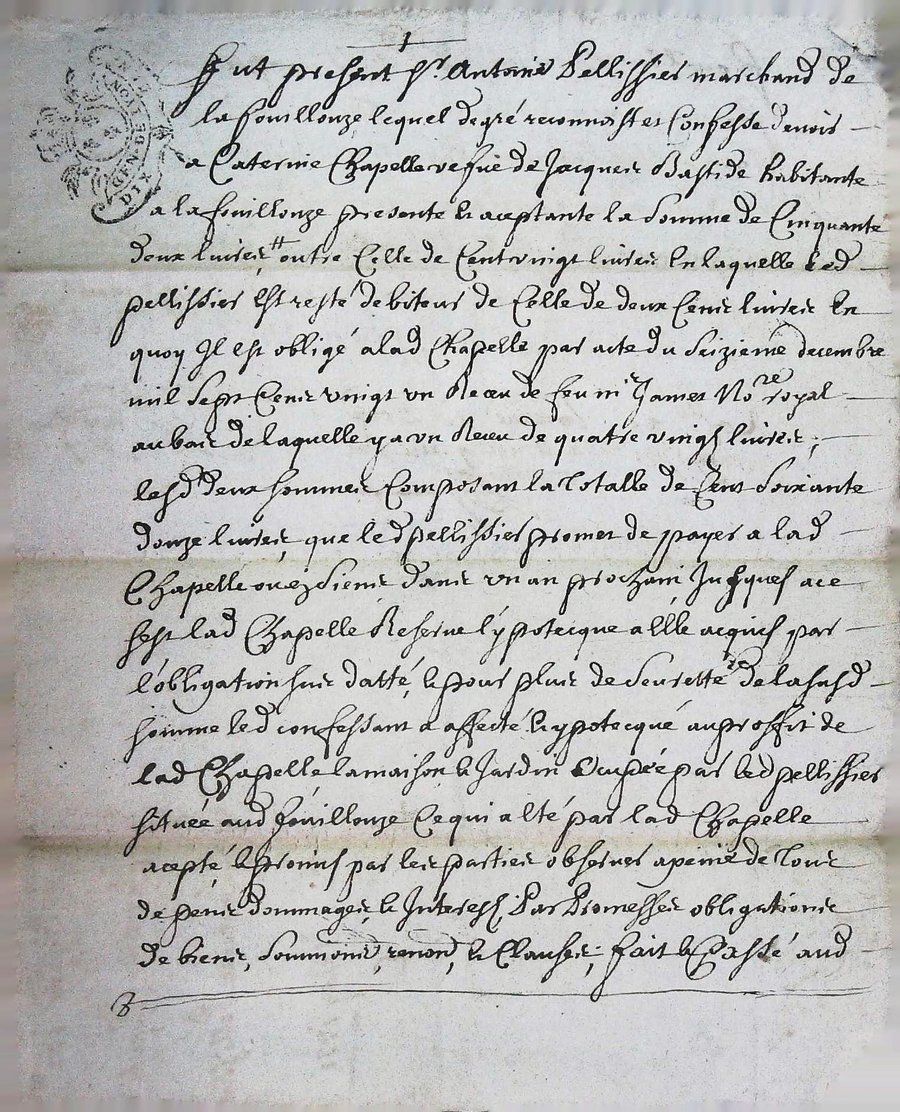 Fut present Sr. Antoine Pellissier marchand de
la fouillouze lequel de gré reconnoist et Confesse devoir
a Caterine Chapelle vefue de Jacques Bastide habitante
a la fouillouze presente & aceptante la somme de Cinquante
deux livres, outre Celle de Cent vingt livres En laquelle led
pellissier Est resté debiteur de Celle de deux Cens livres En
quoy Il est obligé a lad Chapelle par acte du Seizieme decembre
mil Sept Cens vingt un Receu de feu me James Nore royal
au bas de laquelle y a un Receu de quatre vingt livres;
lesd deux sommes Composant la Totalle de Cent Soixante
douze livres, que led pellissier promet de payer a lad
Chapelle ou ez siens dans un an prochain, Jusques a ce
sest lad Chapelle Reserve l'ypotecque a Elle acquis par
l'obligation sus datté, & pour plus de seuretté de la susd
somme led confessant a affecté & ypotecqué au proffit de
lad Chapelle la maison & Jardin Ocupée par led pellissier
située aud fouillouze Ce qui a Eté par lad Chapelle
acepté, & promis par les parties observer a peine de Tous
depens dommages & Interests, Par Promesses obligations
de biens, Soumions, renond, & Clauses; fait & Passé aud